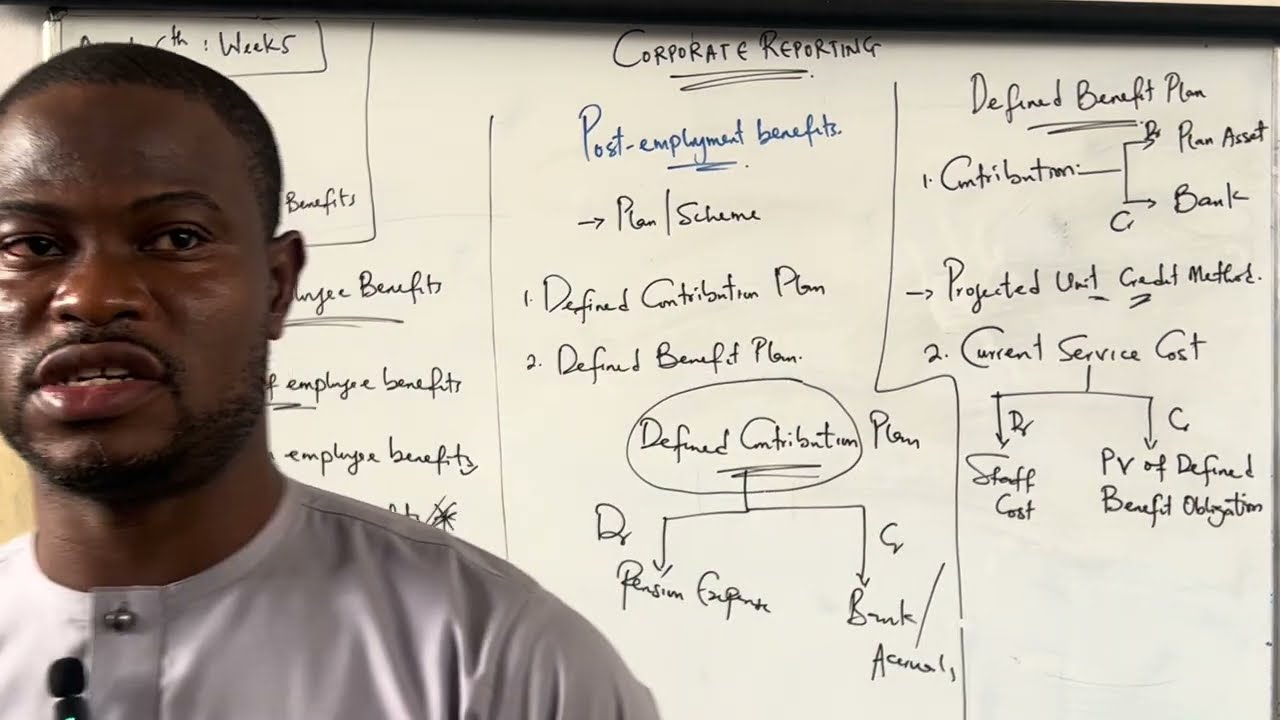 6th : Week 5
Benefits
Benefits
employee benefits
employee benefits
CORPORATE REPORTING
Post-employment benefits.
→ Plan/Scheme
1. Defined Contribution Plan
2. Defined Benefit Plan.
Defined Contribution Plan
Dr
Cr
Pension Expense
Bank/
Accruals
Defined Benefit Plan
Dr Plan Asset
1. Contribution
Bank
Cr
→ Projected Unit Credit Method.
2. Current Service Cost
Dr
Cr
Staff
Cost
PV of Defined
Benefit Obligation